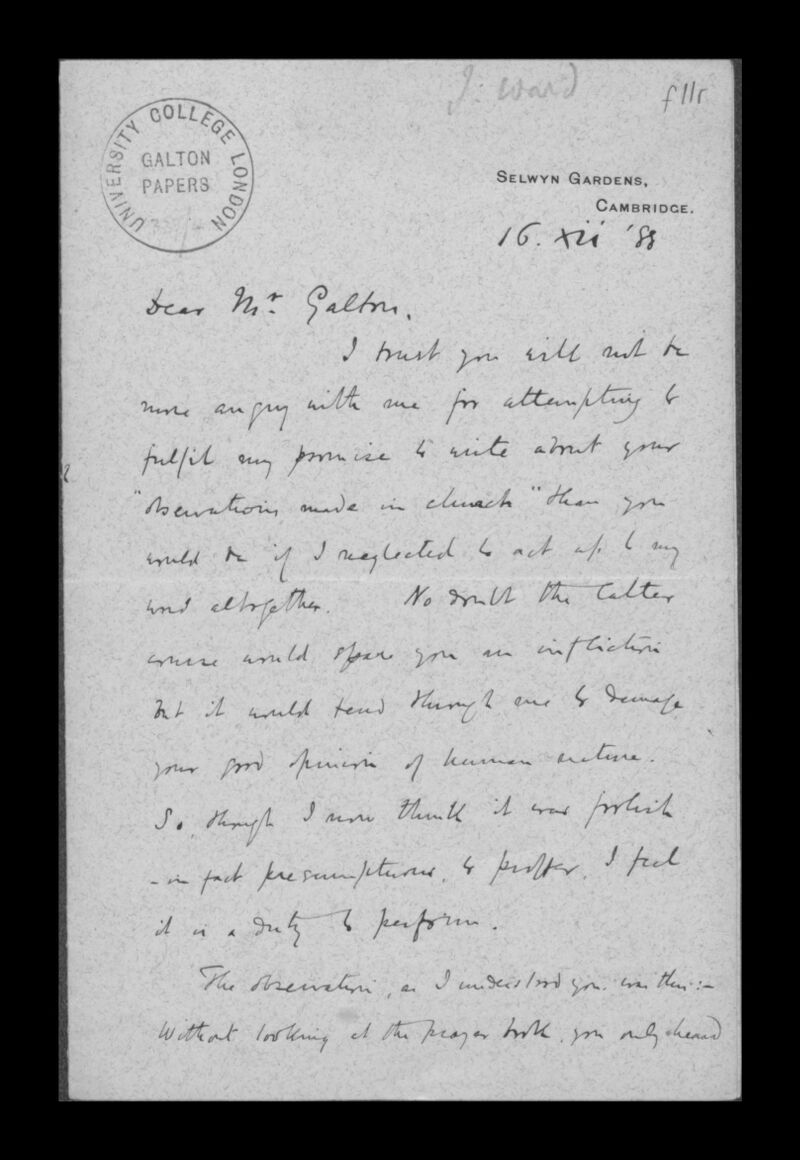 J. Ward
f11r
UNIVERSITY COLLEGE LONDON
GALTON
PAPERS
SELWYN GARDENS,
CAMBRIDGE.
16. xii '88
Dear Mr. Galton,
I trust you will not be
more angry with me for attempting to
fulfil my promise to write about your
"observations made in church" than you
would be if I neglected to act up to my
word altogether. No doubt the latter
course would spare you an infliction
but it would tend through me to damage
your good opinion of human nature.
So, though I now think it was foolish
- in fact presumptuous, to proffer, I feel
it is a duty to perform.
The observation, as I understood you, was this:-
Without looking at the prayer book, you only heard